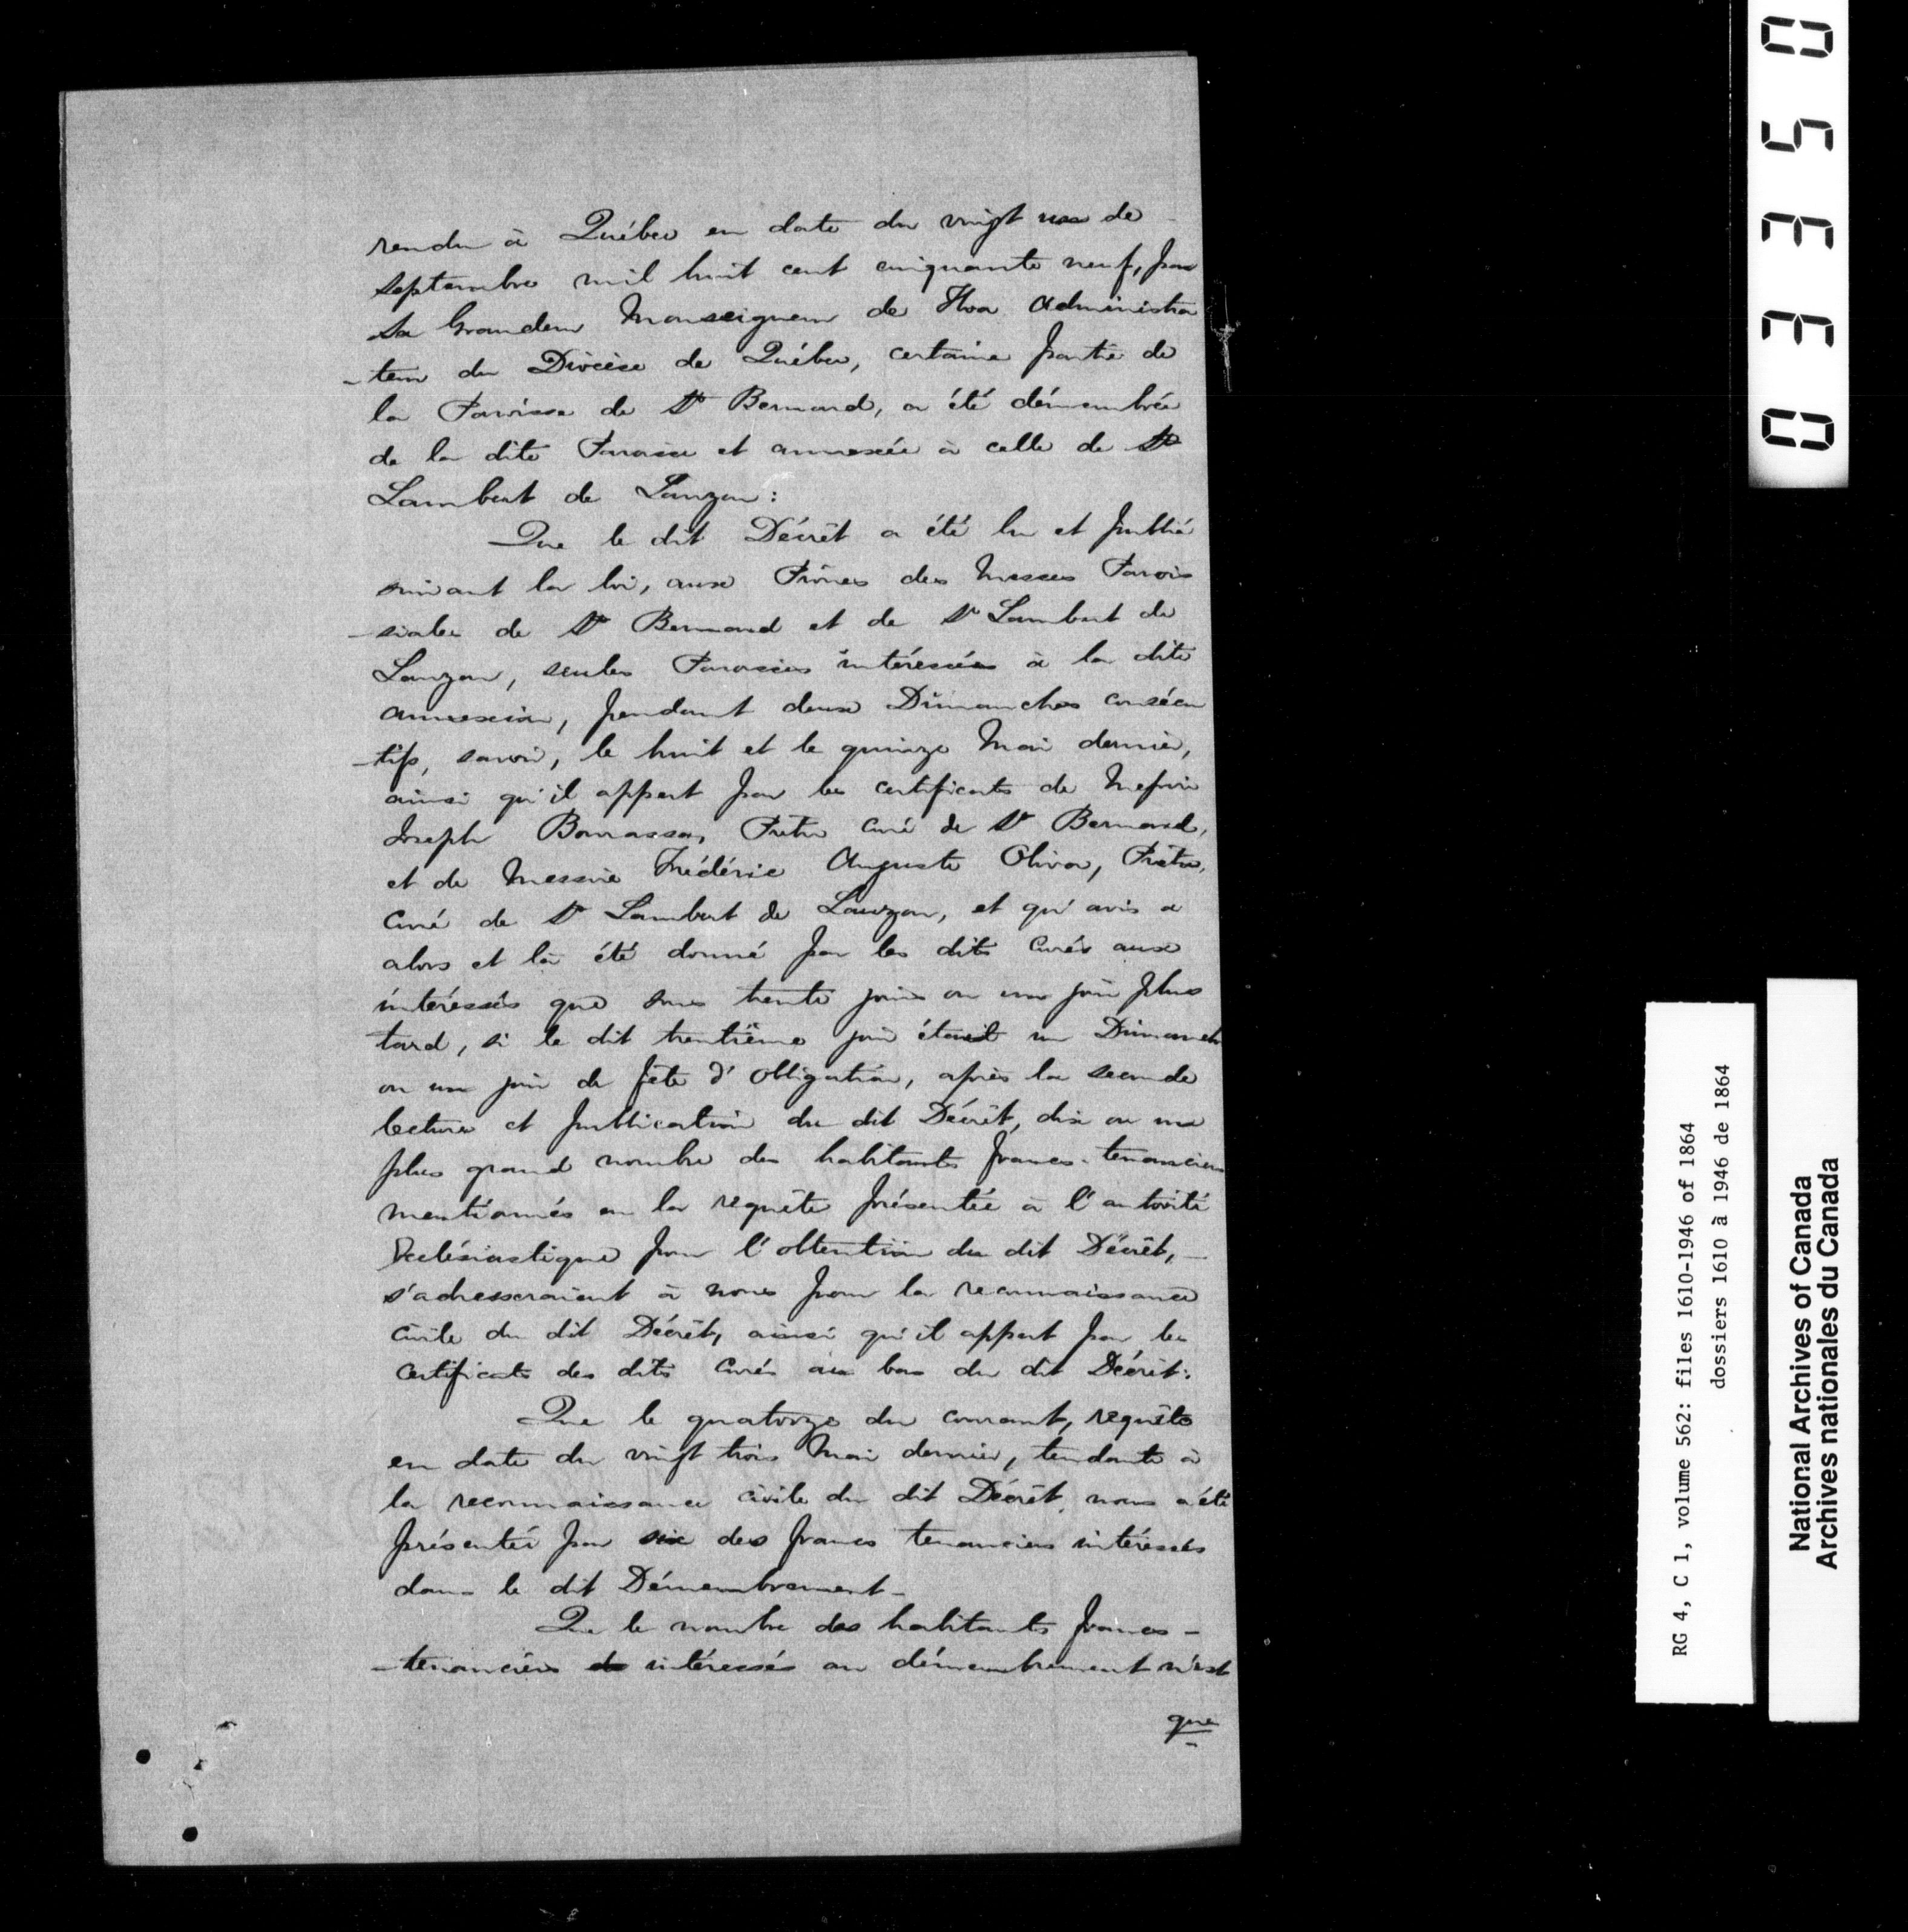 rendu à Québec en date du vingt un de
septembre mil huit cent cinquante neuf, par
Sa Grandeur Monseigneur de Tloa Administra
-teur du Diocèse de Québec, certaine partie de
la Paroisse de St Bernard, a été démembrée
de la dite Paroisse et annexée à celle de St
Lambert de Lauzon:
Que le dit Décrêt a été lu et publié
suivant la loi, aux Prônes des Messes Parois
-siales de St Bernard et de St Lambert de
Lauzon, seules Paroisses intéressées à la dite
annexion, pendant deux Dimanches consécu
-tifs, savoir, le huit et le quinze Mai dernier,
ainsi qu'il appert par les certificats de Messire
Joseph Bourassa, Prêtre Curé de St Bernard,
et de Messire Frédéric Auguste Oliva, Prêtre,
Curé de St Lambert de Lauzon, et qu'avis a
alors et là été donné par les dits Curés aux
intéressés que sous trente jours ou un jour plus
tard, si le dit trentième jour était un Dimanche
ou un jour de fête d'obligation, après la seconde
lecture et publication du dit Décrêt, dix ou un
plus grand nombre des habitants francs-tenanciers
mentionnés en la requête présentée à l'autorité
Ecclésiastique pour l'obtention du dit Décrêt,
s'adresseraient à nous pour la reconnaissance
civile du dit Décrêt, ainsi qu'il appert par les
certificats des dits Curés au bas du dit Décrêt:
Que le quatorze du courant, requête
en date du vingt trois Mai dernier, tendante à
la reconnaissance civile du dit Décrêt, nous a été
présentée par six des francs tenanciers intéressés
dans le dit Démembrement-
Que le nombre des habitants francs-
-tenanciers intéressés au démembrement n'est
que
03350
RG 4, C 1, volume 562: files 1610-1946 of 1864
dossiers 1610 à 1946 de 1864
National Archives of Canada
Archives nationales du Canada